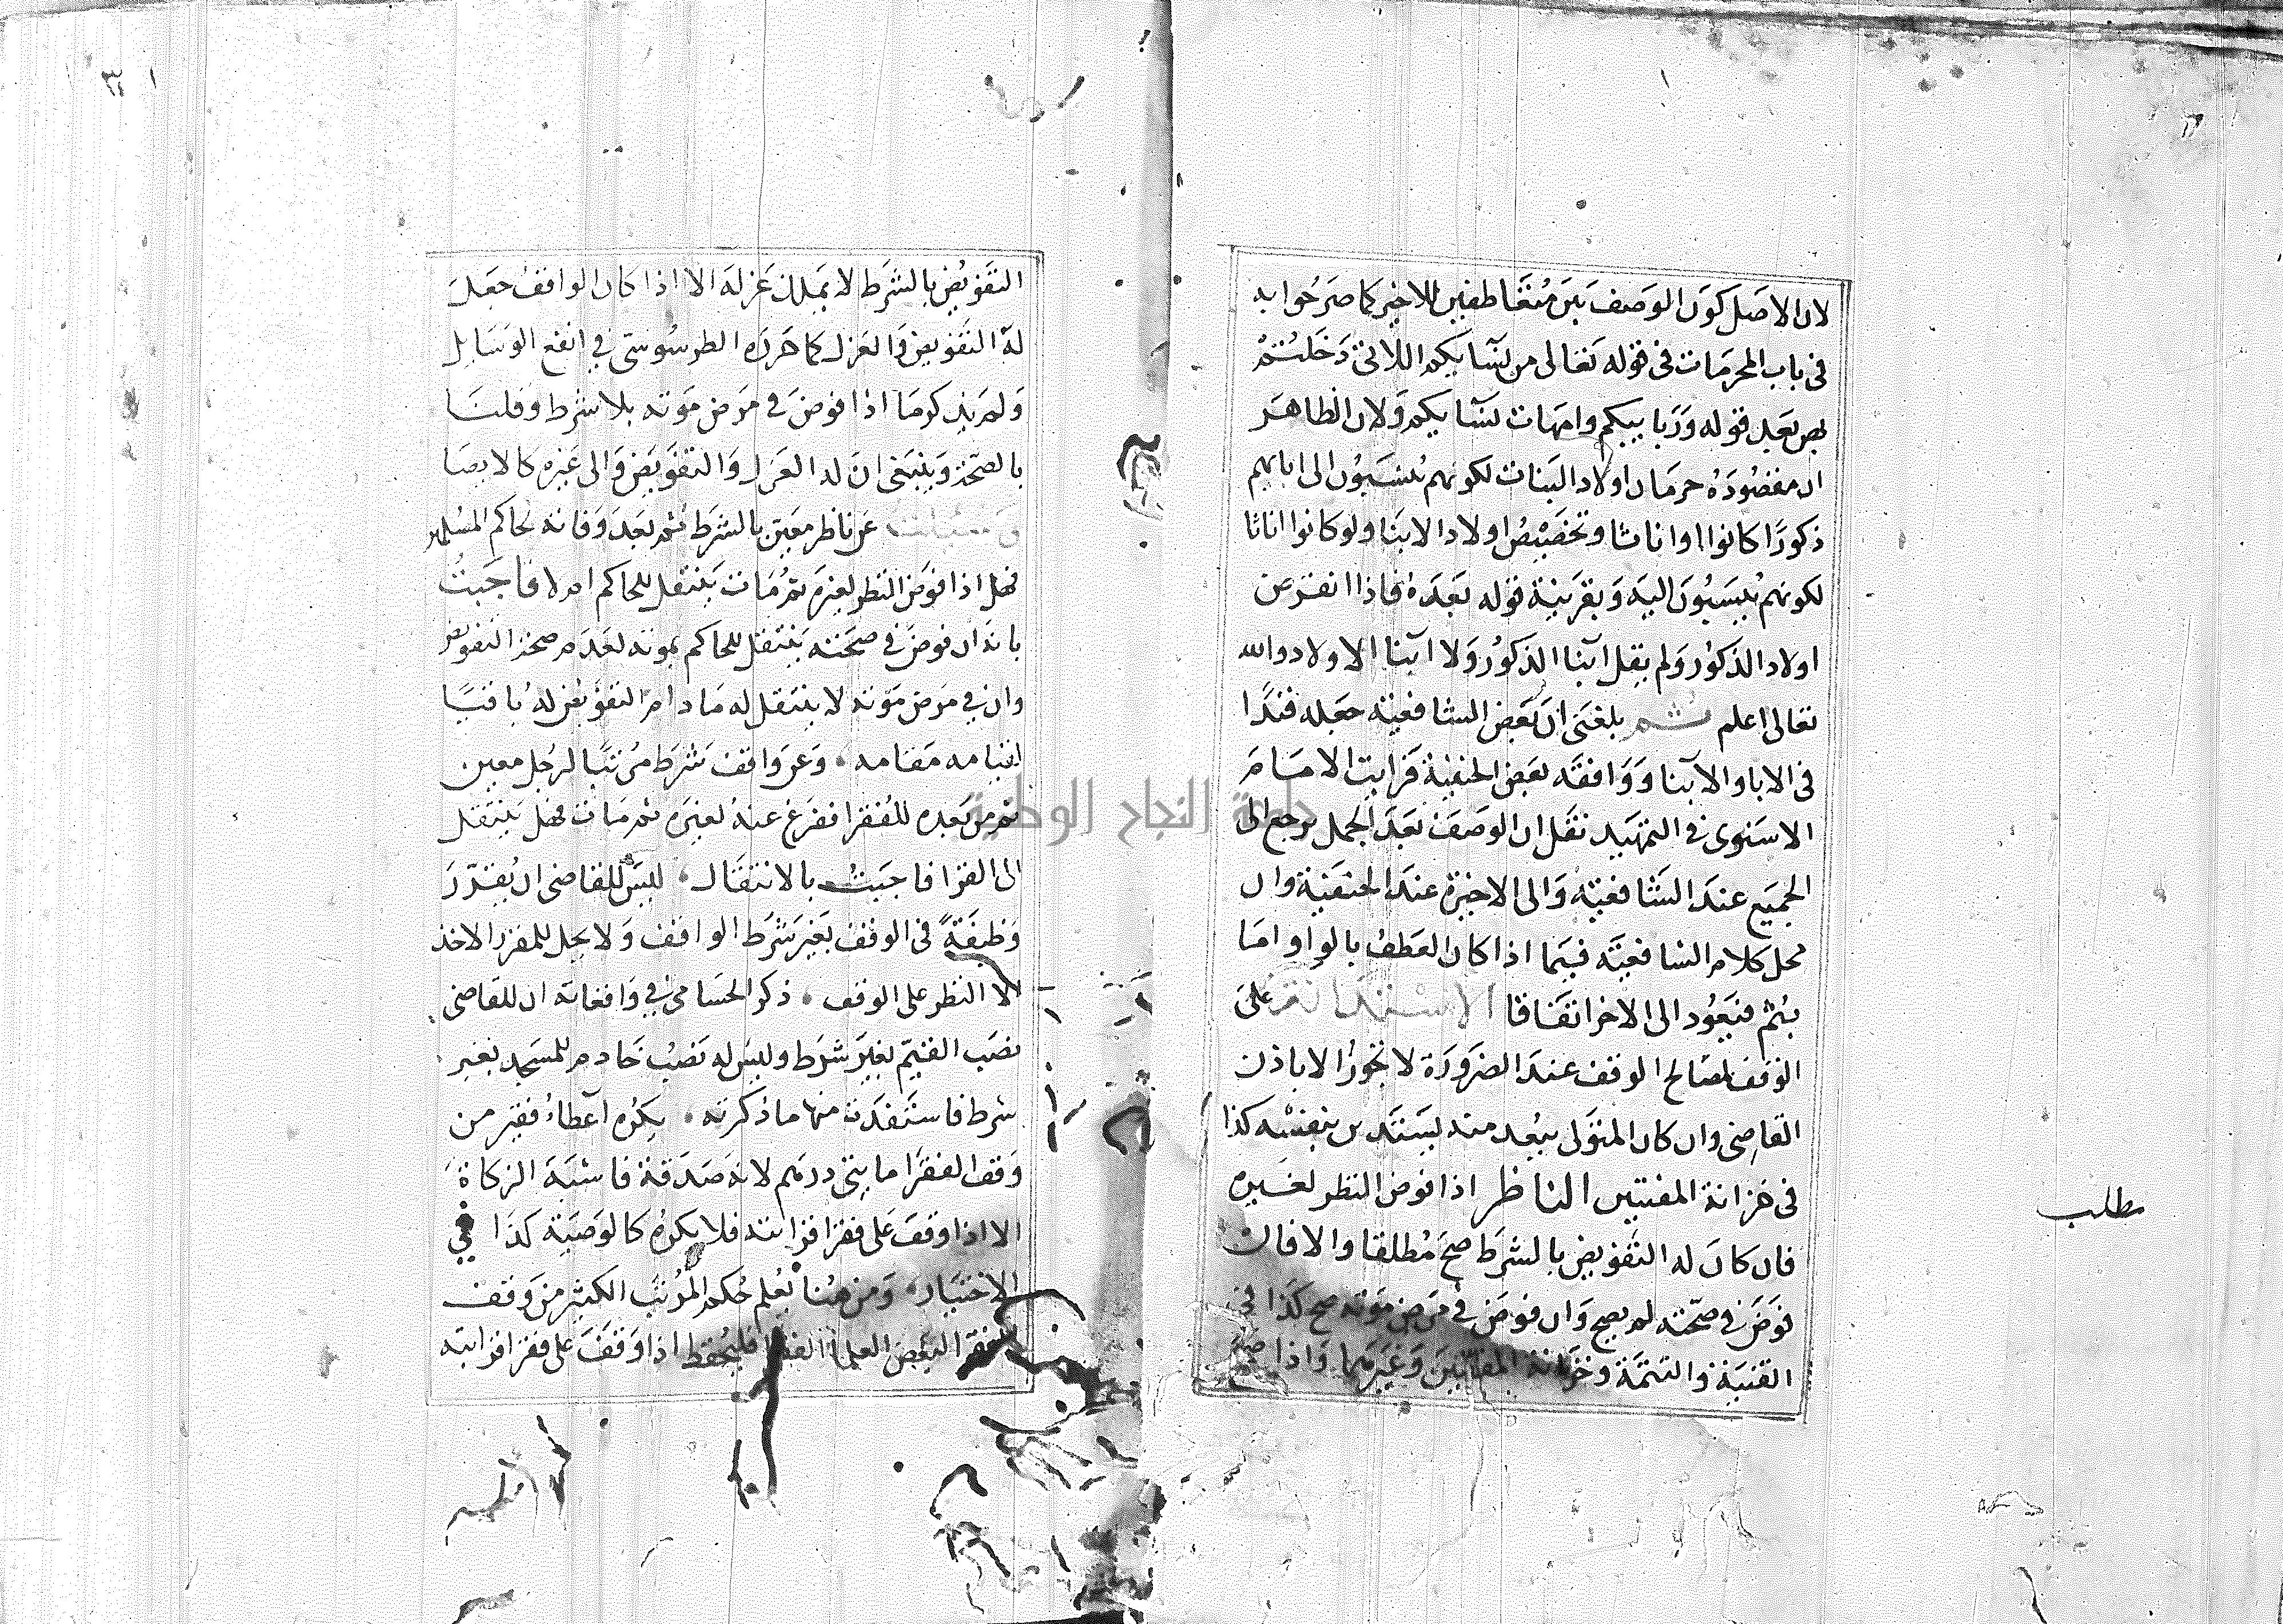 لان الاصل كون الوصف بين متعاطفين للاخير كما صرحوا به
في باب المحرمات في قوله تعالى من نسايكم اللاتي دخلتم
بهن بعد قوله وربايبكم وامهات نسايكم ولان الظاهر
ان مقصوده حرمان اولاد البنات لكونهم ينسبون الى ابايهم
ذكورا كانوا او اناثا وتخصيص اولاد الابنا ولو كانوا اناثا
لكونهم ينسبون اليه وبقرينة قوله بعده فاذا انقرض
اولاد الذكور ولم يقل ابنا الذكور ولا ابنا الاولاد والله
تعالى اعلم ثم بلغني ان بعض الشافعية جعله قيدا
في الابا والابنا ووافقه بعض الحنفية فرايت الامام
الاسنوي في التمهيد نقل ان الوصف بعد الجمل يرجع الى
الجميع عند الشافعية والى الاخيرة عند الحنفية وان
محل كلام الشافعية فيما اذا كان العطف بالواو اما
بثم فيعود الى الاخر اتفاقا الاستدانة على
الوقف لمصالح الوقف عند الضرورة لا تجوز الا باذن
القاضي وان كان المتولي يبعد منه يستدين بنفسه كذا
في خزانة المفتين الناظر اذا فوض النظر لغيره
فان كان له التفويض بالشرط صح مطلقا والا فان
فوض في صحته لم يصح وان فوض في مرض موته صح كذا في
القنية والتتمة وخزانة المفتين وغيرهما واذا صح
مطلب
التفويض بالشرط لا يملك عزله الا اذا كان الواقف جعل
له التفويض والعزل كما حرره الطرسوسي في انفع الوسايل
ولم يذكر ما اذا فوض في مرض موته بلا شرط وقلنا
بالصحة وينبغي ان له العزل والتفويض والى غيره كالايصا
وسئلت عن ناظر معين بالشرط ثم بعد وفاته لحاكم المسلمين
فهل اذا فوض النظر لغيره ثم مات ينتقل للحاكم ام لا فاجبت
بانه ان فوض في صحته ينتقل للحاكم بموته لعدم صحة التفويض
وان في مرض موته لا ينتقل له ما دام التفويض له باقيا
لقيامه مقامه وعن واقف شرط مرتبا لرجل معين
ثم من بعده للفقرا ففرغ عنه لغيره ثم مات فهل ينتقل
الى الفقرا فاجبت بالانتقال ليس للقاضي ان يقرر
وظيفة في الوقف بغير شرط الواقف ولا يحل للمقرر الاخذ
الا النظر على الوقف ذكر الحسامي في واقعاته ان للقاضي
نصب القيم بغير شرط وليس له نصب خادم للمسجد بغير
شرط فاستفدت منها ما ذكرته يكره اعطاء فقير من
وقف الفقرا مايتي درهم لانه صدقة فاشبه الزكاة
الا اذا وقف على فقرا قرابته فلا يكره كالوصية كذا في
الاختيار ومن هنا يعلم حكم المرتب الكثير من وقف
الفقرا لبعض العلما الفقرا فليحفظ اذا وقف على فقرا قرابته
جامعة النجاح الوطنية